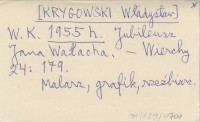 [KRYGOWSKI Władysław]
W. K. 1955 h. Jubileusz
Jana Wałacha. – Wierchy
24: 179.
Malarz, grafik, rzeźbiarz.